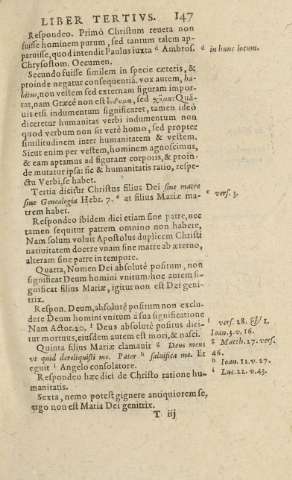 LIBER TERTIVS. 147
Respondeo. Primò Christum reuera non
fuisse hominem purum, sed tantum talem ap-
paruisse, quod intendit Paulus iuxta e Ambros.
e in hunc locum.
Chrysostom. Oecumen.
Secundo fuisse similem in specie cæteris, &
proinde negatur consequentia. vox autem, ha-
bitus, non vestem sed externam figuram impor-
tat, nam Græcè non est
sed
Quā-
uis etsi indumentum significaret, tamen ideò
diceretur humanitas verbi indumentum non
quod verbum non sit verè homo, sed propter
similitudinem inter humanitatem & vestem.
Sicut enim per vestem, hominem agnoscimus,
& eam aptamus ad figuram corporis, & proin-
de mutatur ipsa: sic & humanitatis ratio, respe-
ctu Verbi, se habet.
Tertia dicitur Christus filius Dei sine matre
sine Genealogia Hebr. 7. at filius Mariæ ma-
vers. 3.
trem habet.
Respondeo ibidem dici etiam sine patre, nec
tamen sequitur patrem omnino non habere,
Nam solum voluit Apostolus duplicem Christi
natiuitatem docere vnam sine matre ab æterno,
alteram sine patre in tempore.
Quarta, Nomen Dei absolutè positum, non
significat Deum homini vnitum: hoc autem si-
gnificat filius Mariæ, igitur non est Dei gen-
itrix.
Respon. Deum, absolutè positum non exclu-
dere Deum homini vnitum à sua significatione
Nam Actor. 20, Deus absolutè positus dici-
vers. 28. & 1.
Ioan. 3. v. 16.
tur mortuus, eiusdem autem est mori, & nasci.
Quinta filius Mariæ clamauit Deus meus
Matth. 27. vers.
vt quid dereliquisti me. Pater saluifica me. Et
46.
Ioan. 12. v. 27.
eguit Angelo consolatore.
Luc. 22. v. 43.
Respondeo hæc dici de Christo ratione hu-
manitatis.
Sexta, nemo potest gignere antiquiorem se,
ergo non est Maria Dei genitrix.
T iij